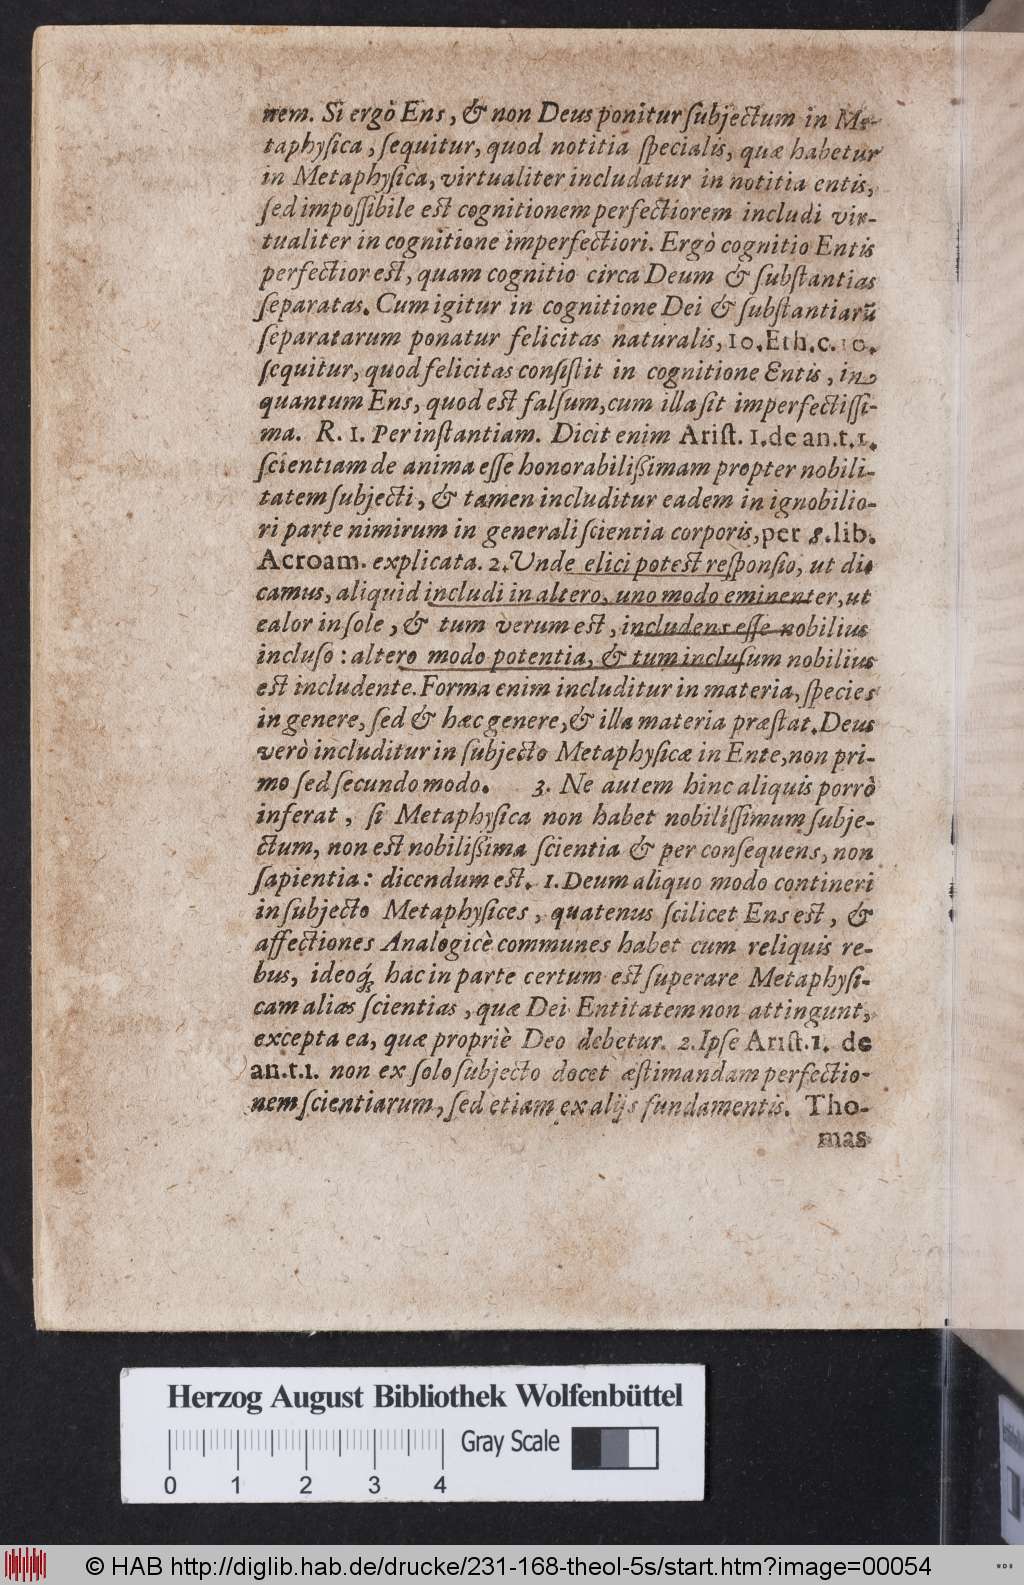 nem. Si ergò Ens, & non Deus ponitur ſubjectum in Me-
taphyſica, ſequitur, quod notitia ſpecialis, quæ habetur
in Metaphyſica, virtualiter includatur in notitia entis,
ſed impoſſibile est cognitionem perfectiorem includi vir-
tualiter in cognitione imperfectiori. Ergò cognitio Entis
perfectior est, quam cognitio circa Deum & ſubſtantias
ſeparatas. Cum igitur in cognitione Dei & ſubſtantiarũ
ſeparatarum ponatur felicitas naturalis, 10. Eth. c. 10.
ſequitur, quod felicitas conſiſtit in cognitione Entis, in-
quantum Ens, quod est falſum, cum illa ſit imperfectiſſi-
ma. R. 1. Per inſtantiam. Dicit enim Ariſt. 1. de an. t. 1.
ſcientiam de anima eſſe honorabilißimam propter nobili-
tatem ſubjecti, & tamen includitur eadem in ignobilio-
ri parte nimirum in generali ſcientia corporis, per 8. lib.
Acroam. explicata. 2. Unde elici potest reſponſio, ut di-
camus, aliquid includi in altero, uno modo eminenter, ut
calor in ſole, & tum verum est, includens eſſe nobilius
incluſo: altero modo potentia, & tum incluſum nobilius
est includente. Forma enim includitur in materia, ſpecies
in genere, ſed & hæc genere, & illa materia præſtat. Deus
verò includitur in ſubjecto Metaphyſicæ in Ente, non pri-
mo ſed ſecundo modo. 3. Ne autem hinc aliquis porrò
inferat, ſi Metaphyſica non habet nobiliſſimum ſubje-
ctum, non est nobilißima ſcientia & per conſequens, non
ſapientia: dicendum est. 1. Deum aliquo modo contineri
in ſubjecto Metaphyſices, quatenus ſcilicet Ens est, &
affectiones Analogicè communes habet cum reliquis re-
bus, ideoq́; hac in parte certum est ſuperare Metaphyſi-
cam alias ſcientias, quæ Dei Entitatem non attingunt,
excepta ea, quæ propriè Deo debetur. 2. Ipſe Ariſt. 1. de
an. t. 1. non ex ſolo ſubjecto docet æſtimandam perfectio-
nem ſcientiarum, ſed etiam ex alijs fundamentis. Tho-
mas
Herzog August Bibliothek Wolfenbüttel
Gray Scale
0 1 2 3 4
© HAB http://diglib.hab.de/drucke/231-168-theol-5s/start.htm?image=00054